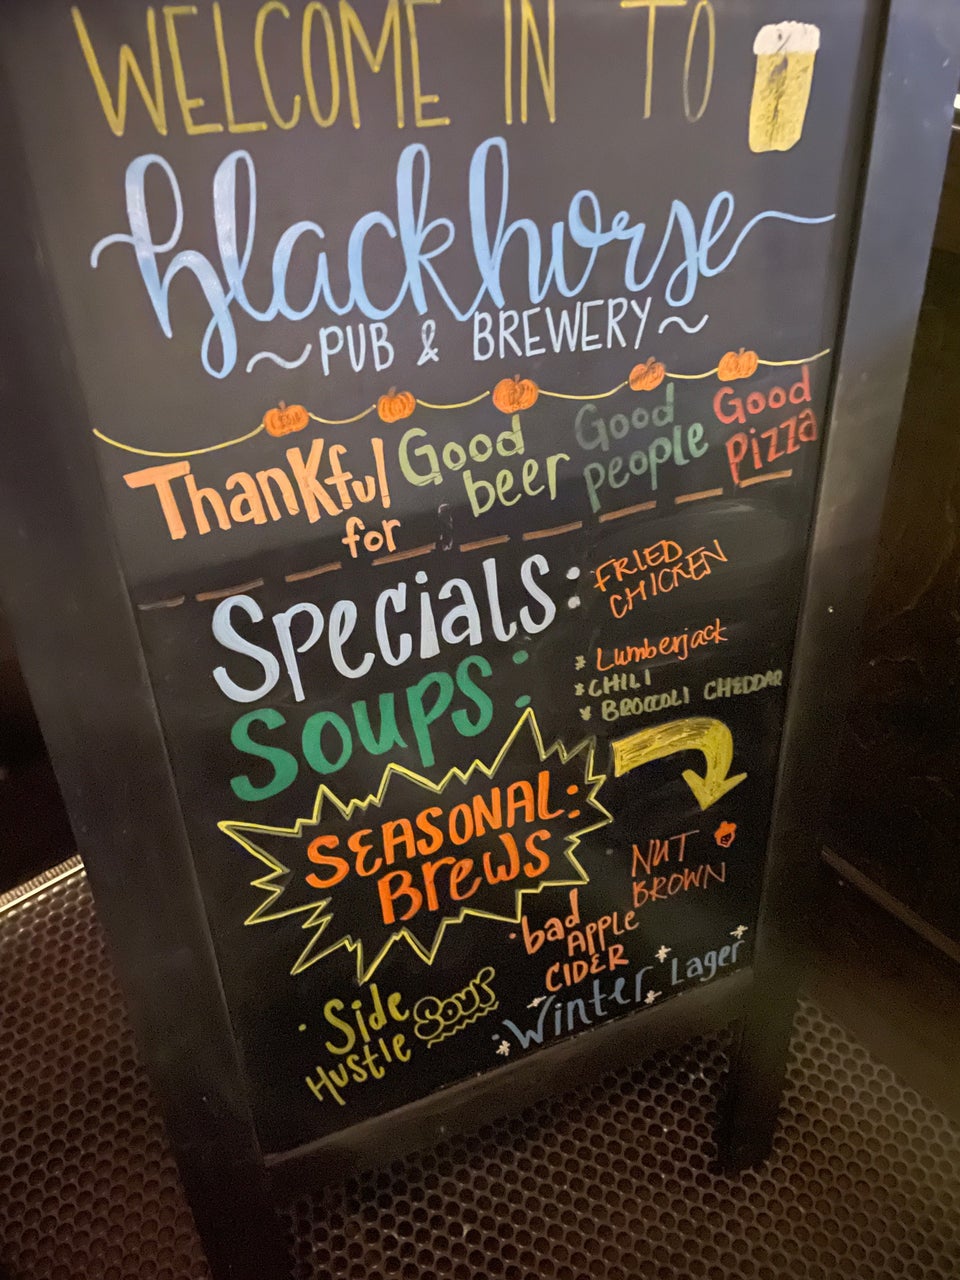 WELCOME IN TO
blackhorse
~PUB & BREWERY~
Thankful for
Good beer
Good people
Good Pizza
Specials:
FRIED
CHICKEN
Soups:
* Lumberjack
* CHILI
* BROCCOLI CHEDDAR
SEASONAL:
Brews
NUT
BROWN
· bad
APPLE
CIDER
· Side
Hustle Sour
· Winter Lager